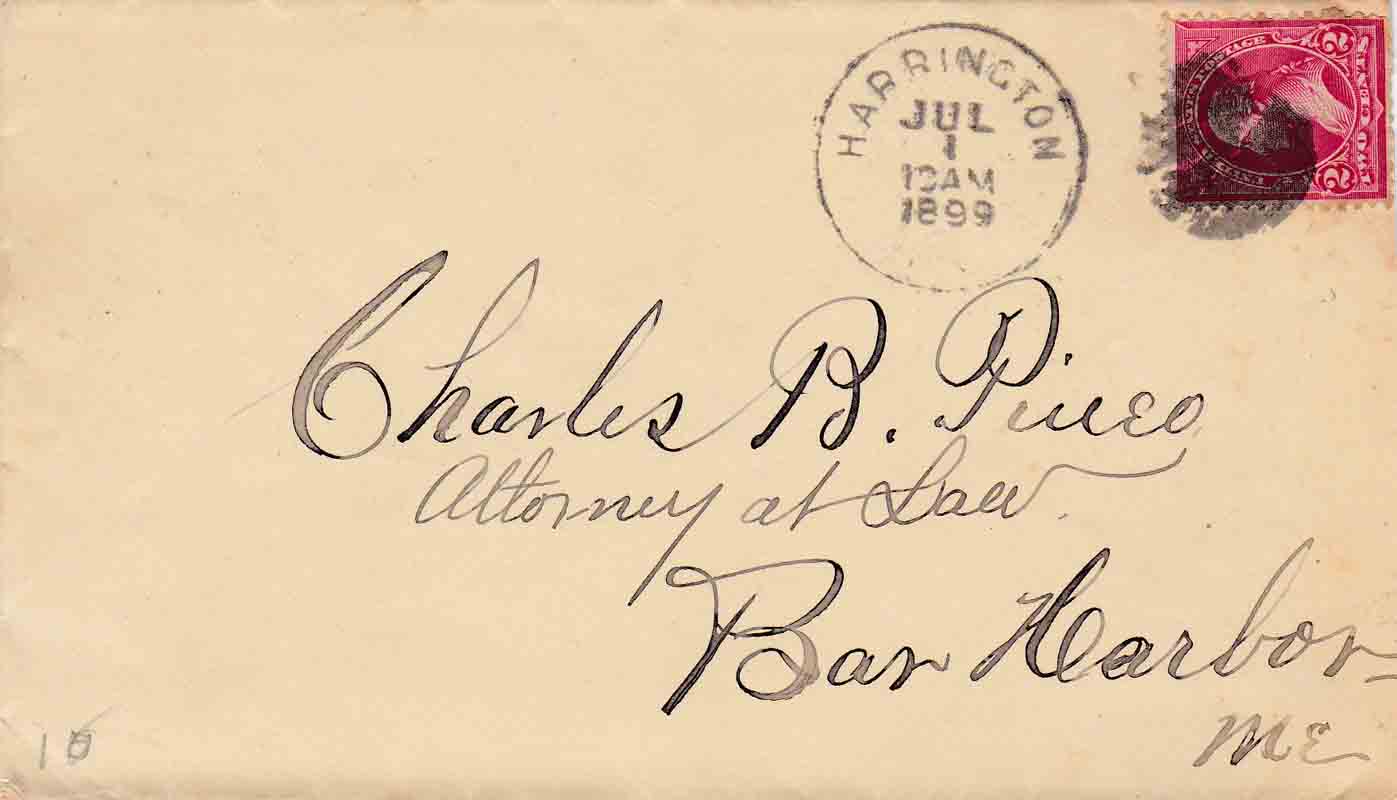 HARRINGTON
JUL
1
10AM
1899
UNITED STATES POSTAGE
2 TWO CENTS 2
Charles B. Pineo
Attorney at Law.
Bar Harbor
Me
10